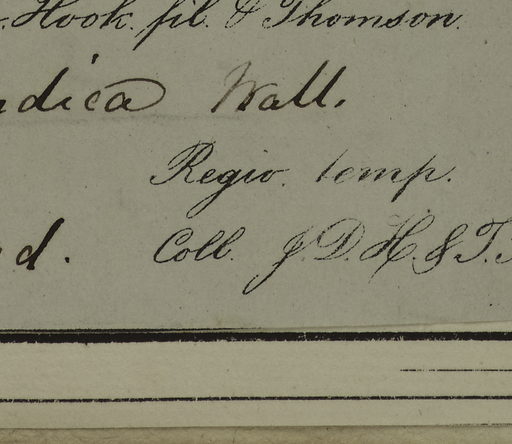 Hook. fil. & Thomson.
ndica Wall.
Regio. temp.
d. Coll. J. D. H. & T.